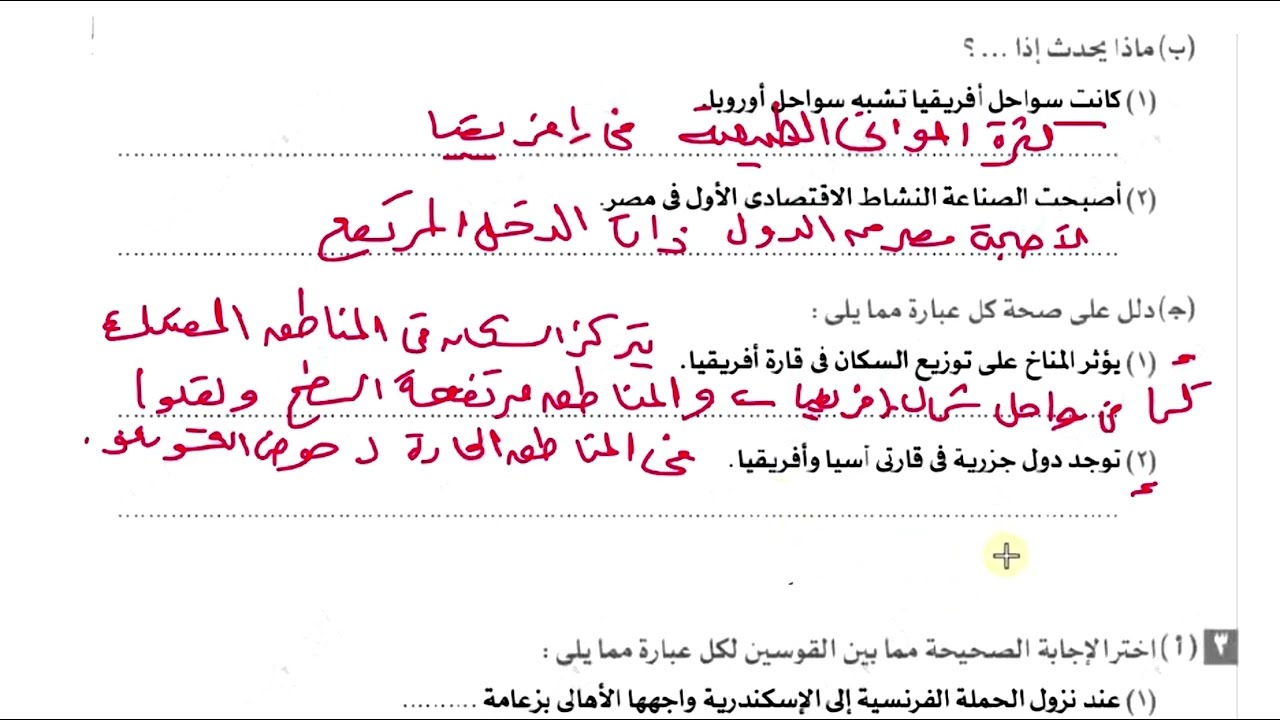 (ب) ماذا يحدث إذا ...؟
(١) كانت سواحل أفريقيا تشبه سواحل أوروبا.
كثرة الموانى الطبيعية فى إفريقيا
(٢) أصبحت الصناعة النشاط الاقتصادى الأول فى مصر.
لأصبحت مصر من الدول ذات الدخل المرتفع
(جـ) دلل على صحة كل عبارة مما يلى :
يتركز السكان فى المناطق المعتدلة
(١) يؤثر المناخ على توزيع السكان فى قارة أفريقيا.
كما فى سواحل شمال إفريقيا والمناطق مرتفعة السطح ويقلوا
فى المناطق الحارة حوض الكونغو.
(٢) توجد دول جزرية فى قارتى آسيا وأفريقيا.
٣ (أ) اختر الإجابة الصحيحة مما بين القوسين لكل عبارة مما يلى :
(١) عند نزول الحملة الفرنسية إلى الإسكندرية واجهها الأهالى بزعامة ..........